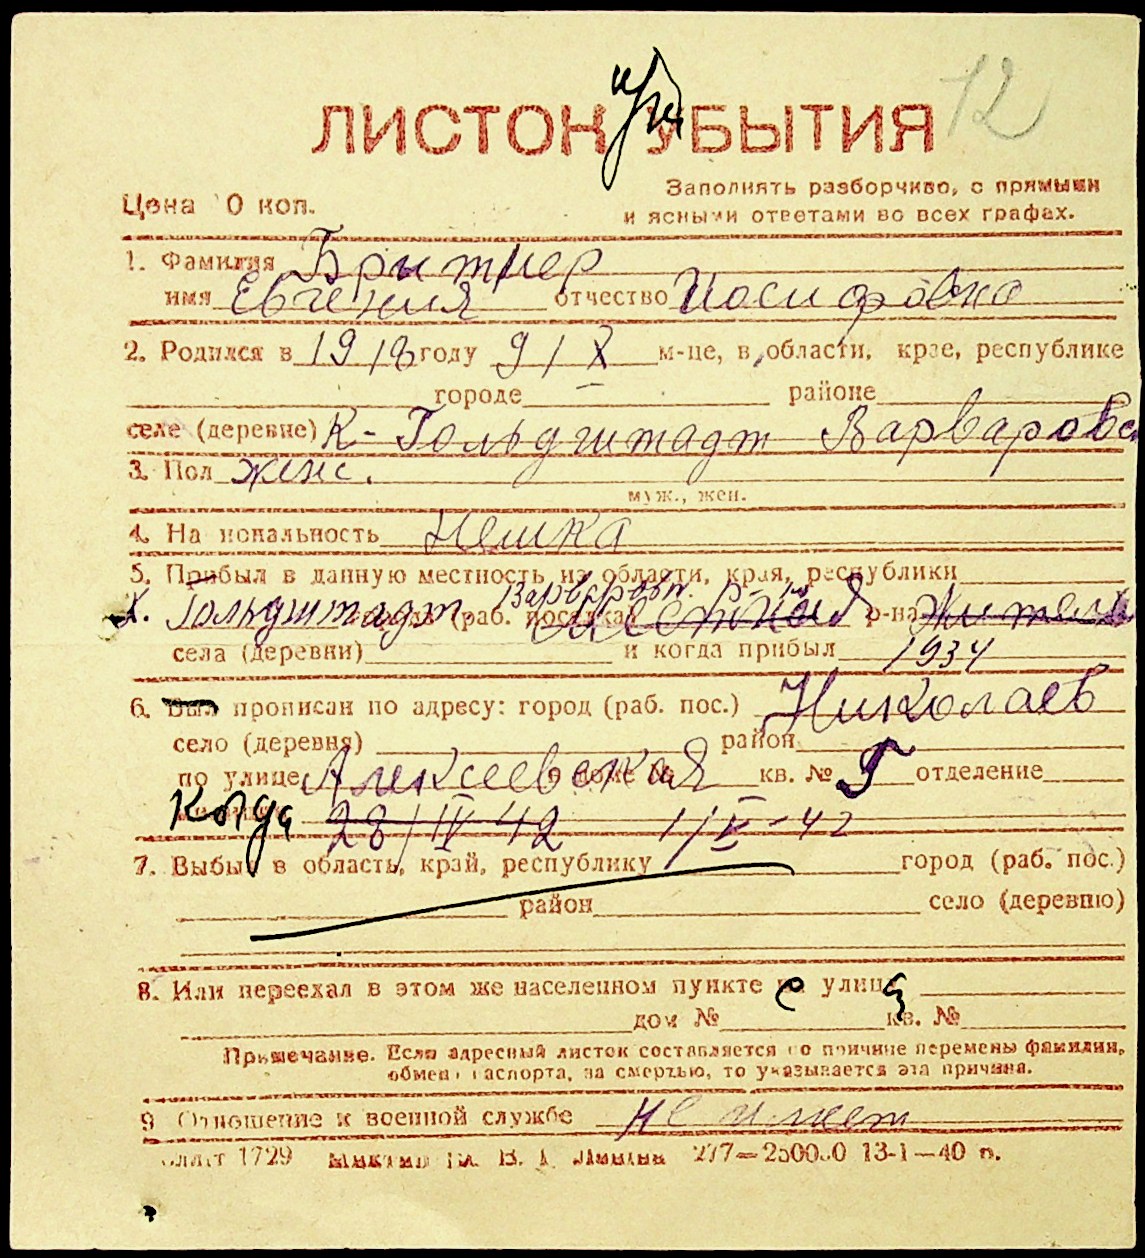 ЛИСТОК УБЫТИЯ
при
12
Цена 0 коп.
Заполнять разборчиво, с прямыми
и ясными ответами во всех графах.
1. Фамилия Бритнер
имя Евгения отчество Иосифовна
2. Родился в 1918 году 9/X м-це, в области, крае, республике
городе районе
селе (деревне) К-Гольдштадт Варваровск
3. Пол женс.
муж., жен.
4. Национальность Немка
5. Прибыл в данную местность из области, края, республики
Х. Гольдштадт, Варваровк. р-на
местная житель
города (раб. поселка) р-на
села (деревни) и когда прибыл 1934
6. Был прописан по адресу: город (раб. пос.) Николаев
село (деревня) район
по улице Алексеевская в доме № кв. № 5 отделение
Когда 28/IV 42 1/V-42
7. Выбыл в область, край, республику город (раб. пос.)
район село (деревню)
8. Или переехал в этом же населенном пункте с улицы
дом № кв. №
Примечание. Если адресный листок составляется по причине перемены фамилии,
обмена паспорта, за смертью, то указывается эта причина.
9 Отношение к военной службе не имеет
1729 277—250000 13-1—40 г.